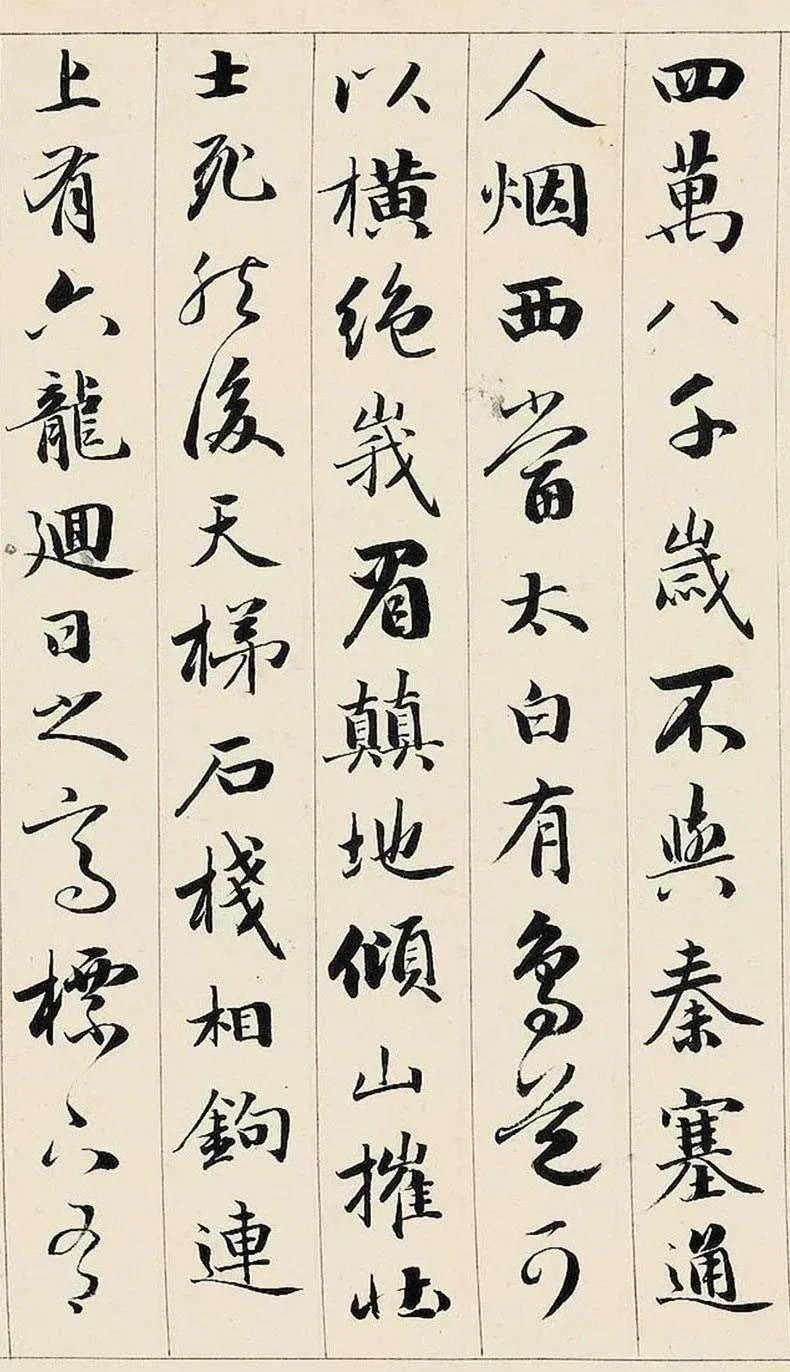 四萬八千歲不與秦塞通
人烟西當太白有鳥道可
以橫絕峩眉顛地傾山摧壯
士死然後天梯石棧相鉤連
上有六龍迴日之高標下有